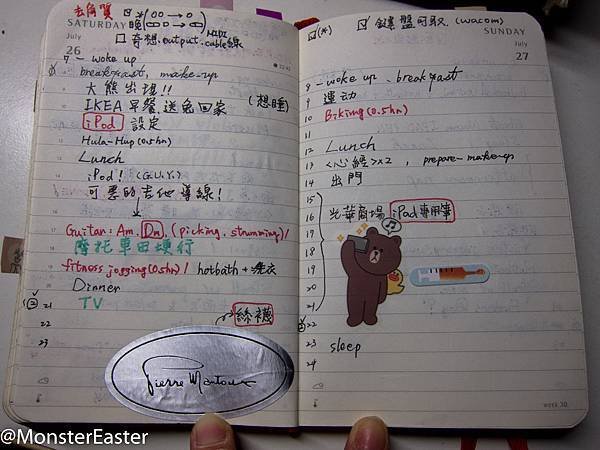 去角質
SATURDAY
July
26
□ 奇想.output.cable線
MIDI
7 - woke up
breakfast, make-up
大熊出現!!
IKEA 早餐 送兔回家 (想睡)
iPod 設定
Hula-Hup (0.5hr)
Lunch
iPod! (G.U.Y.)
可悪的吉他導線!
Guitar: Am, Dm, (picking, strumming)/
摩托車田埂行
fitness jogging (0.5hr) / hotbath + 洗衣
Dinner
21 TV
22 絲襪
23
Pierre Mantoux
(wacom)
SUNDAY
July
27
8 - woke up, breakfast
9 運动
10 Biking (0.5hr)
11
12 Lunch
13 <心經>x2, prepare-make-up
14 出門
15
16 光華商場 iPad專用筆
17
18
19
20
21
22
23 sleep
24
week 30
@MonsterEaster